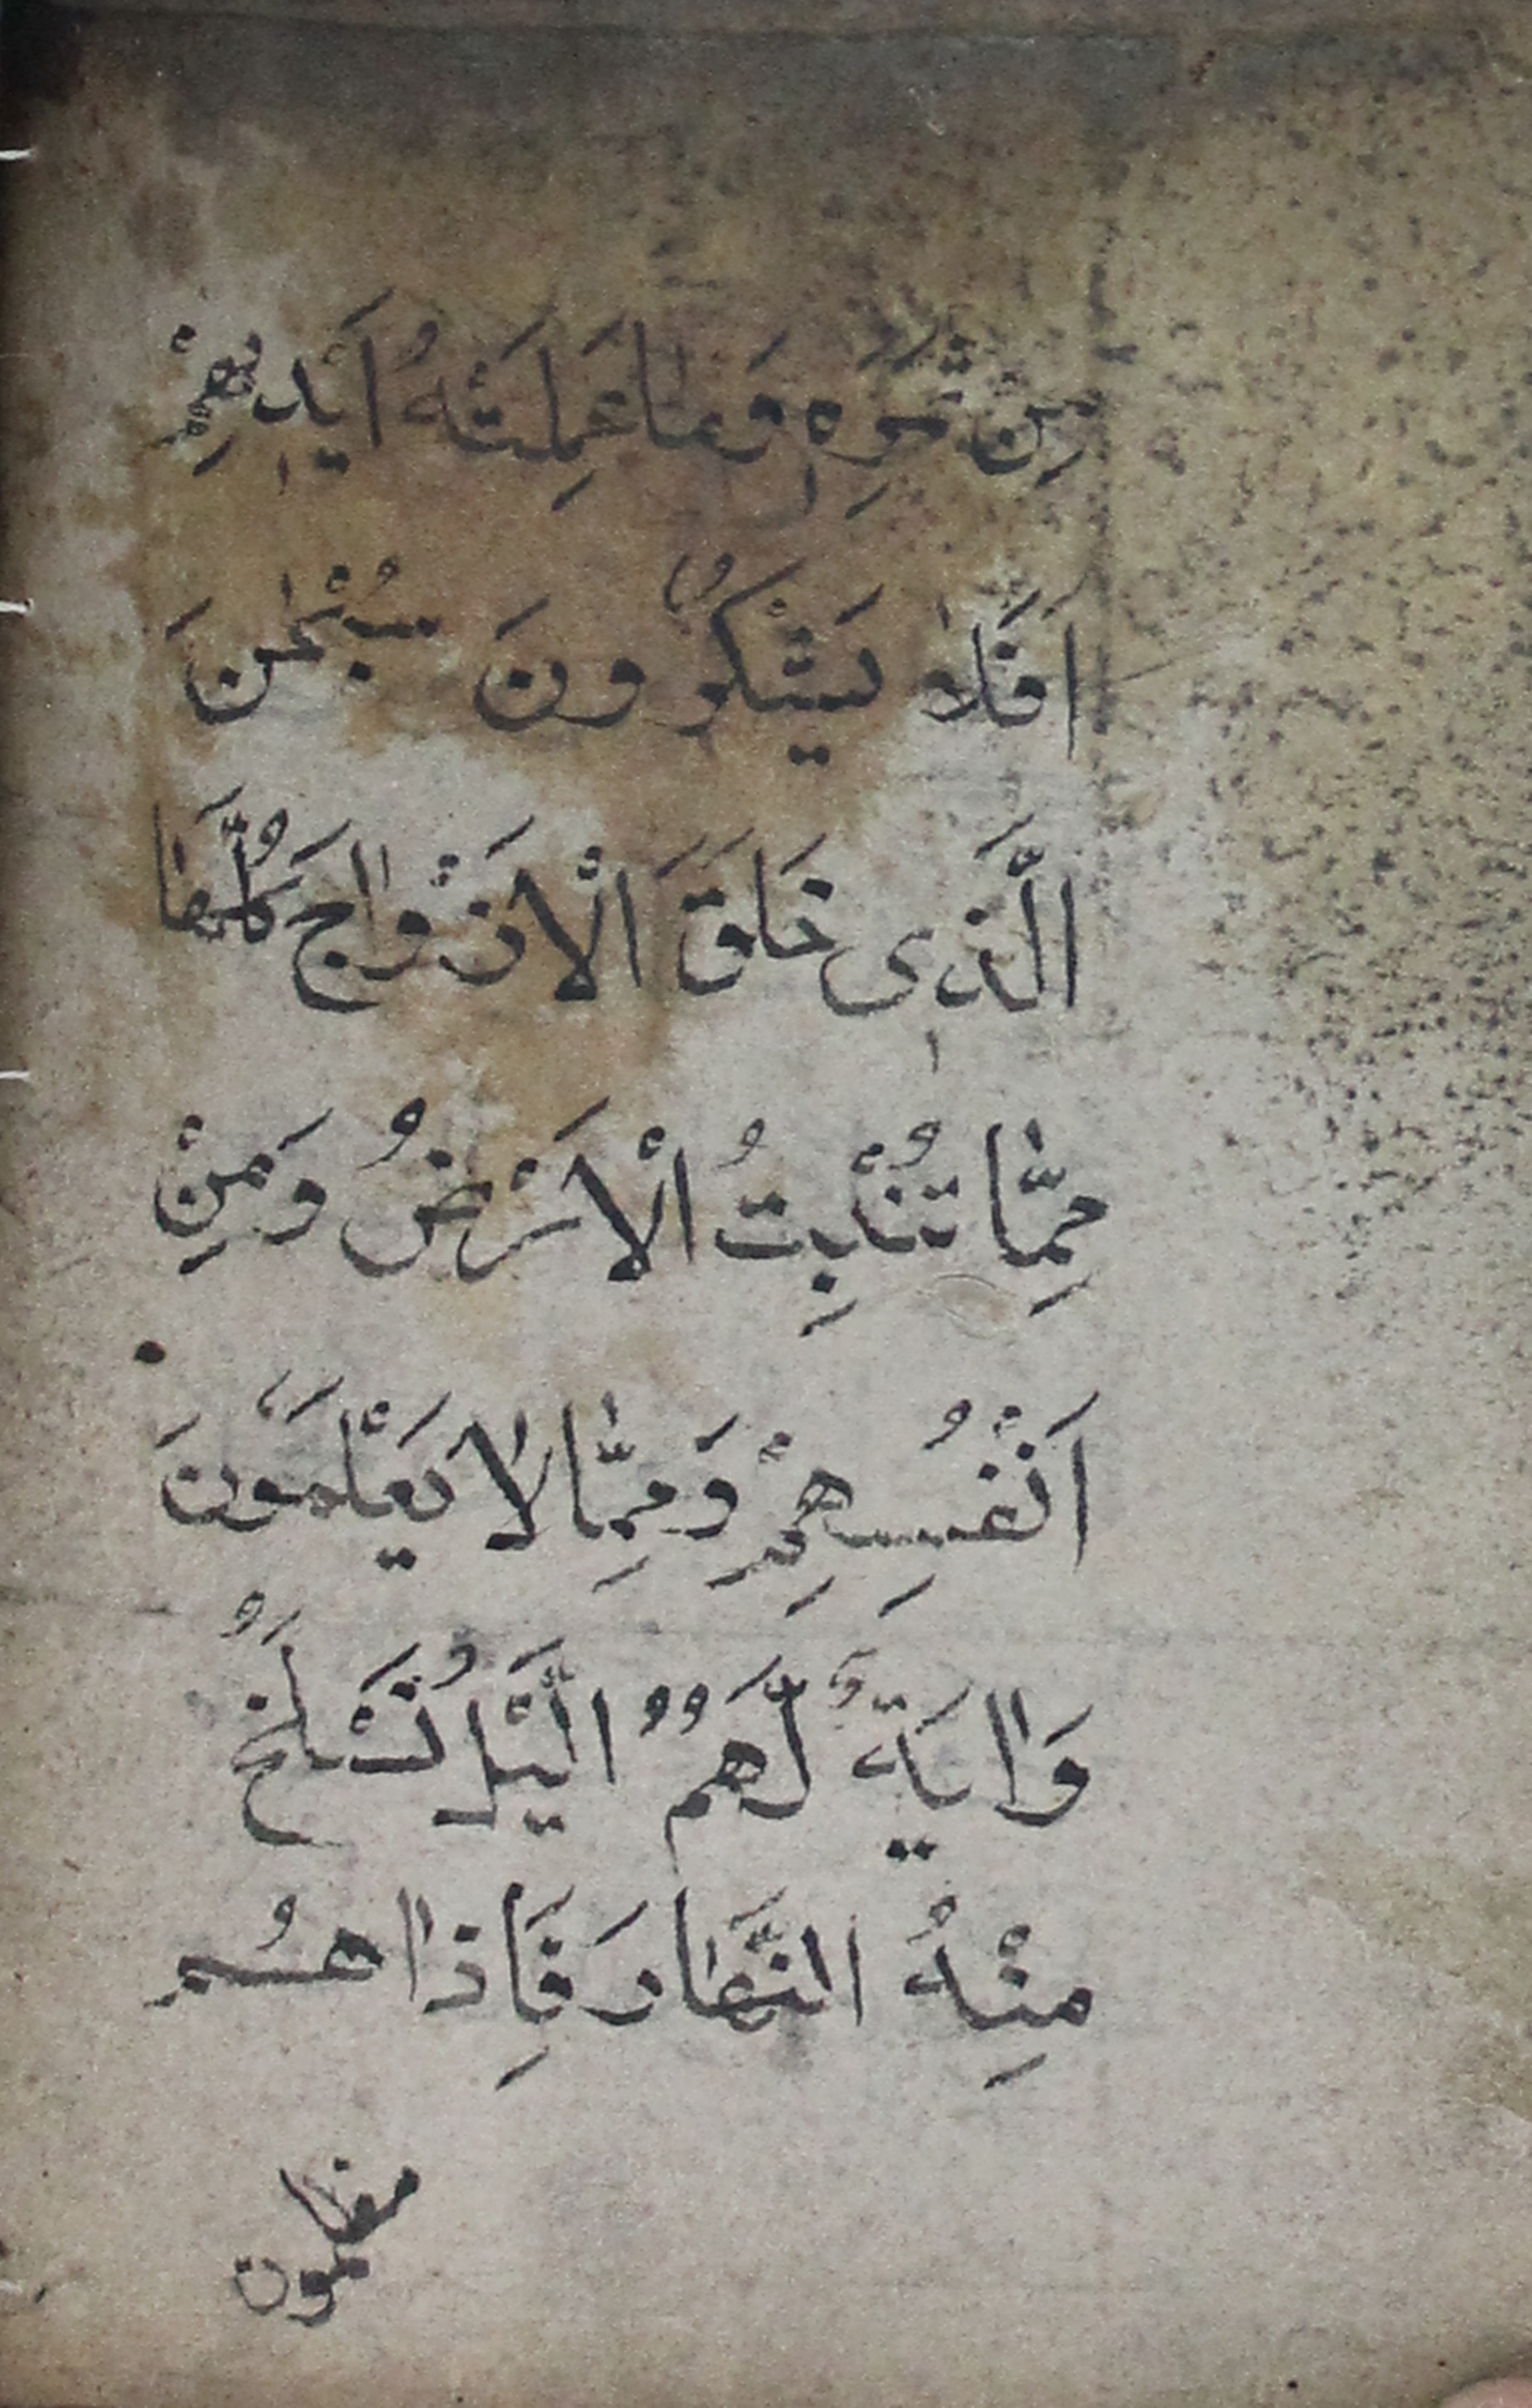 مِنْ ثَمَرِهٖ وَمَا عَمِلَتْهُ اَيْدٖيهِمْ
اَفَلَا يَشْكُرُونَ سُبْحٰنَ
الَّذٖى خَلَقَ الْاَزْوٰاجَ كُلَّهَا
مِمَّا تُنْبِتُ الْاَرْضُ وَمِنْ
اَنْفُسِهِمْ وَمِمَّا لَا يَعْلَمُونَ
وَاٰيَةٌ لَهُمُ الَّيْلُ نَسْلَخُ
مِنْهُ النَّهَارَ فَاِذَا هُمْ
مظلمون